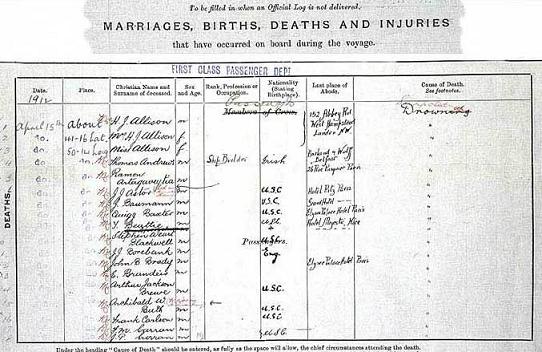 To be filled in when an Official Log is not delivered.
MARRIAGES, BIRTHS, DEATHS AND INJURIES
that have occurred on board during the voyage.
FIRST CLASS PASSENGER DEPT
Date. Place. Christian Name and Surname of deceased. Sex and Age. Rank, Profession or Occupation. Nationality (Stating Birthplace). Last place of Abode. Cause of Death. See footnotes.
1912
Drowning
April 15th About H J Allison m 152 Abbey Rd
do. 41-16 Lat. Mrs H J Allison f West Hampstead
do. 50-14 Long Miss Allison f London N.W.
do Thomas Andrews m Ship Builder Irish Harland & Wolff Belfast
Ramon Artagaveytia m
J J Astor m U.S.C Hotel Ritz Paris
J Baumann m U.S.C.
Quigg Baxter m U.S.C. Elysee Palace Hotel Paris
T. Beattie m Hotel Majestic, Nice
Stephen Weart Blackwell m
J J Borebank m Eng
John B Brady m Elysee Palace Hotel Paris
E. Brandeis m
Arthur Jackson Brewe m U.S.C.
Archibald W. Butt m U.S.C.
Frank Carlson m U.S.C.
DEATHS.
Under the heading "Cause of Death" should be entered, as fully as the space will allow, the chief circumstances attending the death.